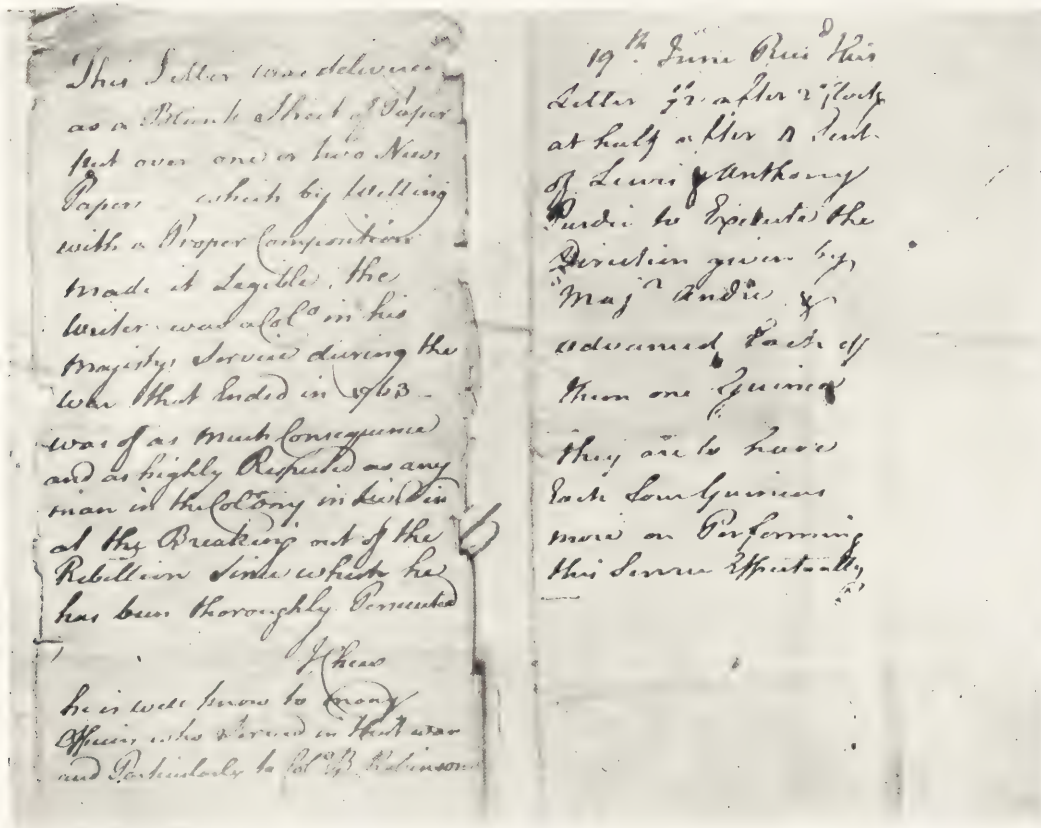 This Letter was delivered
as a Blank Sheet of Paper
put over one or two News
Papers which by Wetting
with a Proper Composition
made it Legible, the
Writer was a Colo in his
Majestys Service during the
War that Ended in 1763
was of as much Consequence
and as highly Respected as any
man in the Colony in
at the Breaking out of the
Rebellion Since which he
has been thoroughly Persecuted
J Chew
he is well know to many
Officers who Served in that war
and Particularly to Col B Robinson
19th June Recd this
Letter after 2 oClock
at half after Sent
of Lewis & Anthony
Purdie to Execute the
Direction given by
Majr Andre &
advanced Each of
them one Guinea
they are to have
Each Four Guineas
more on Performing
this Service Effectually